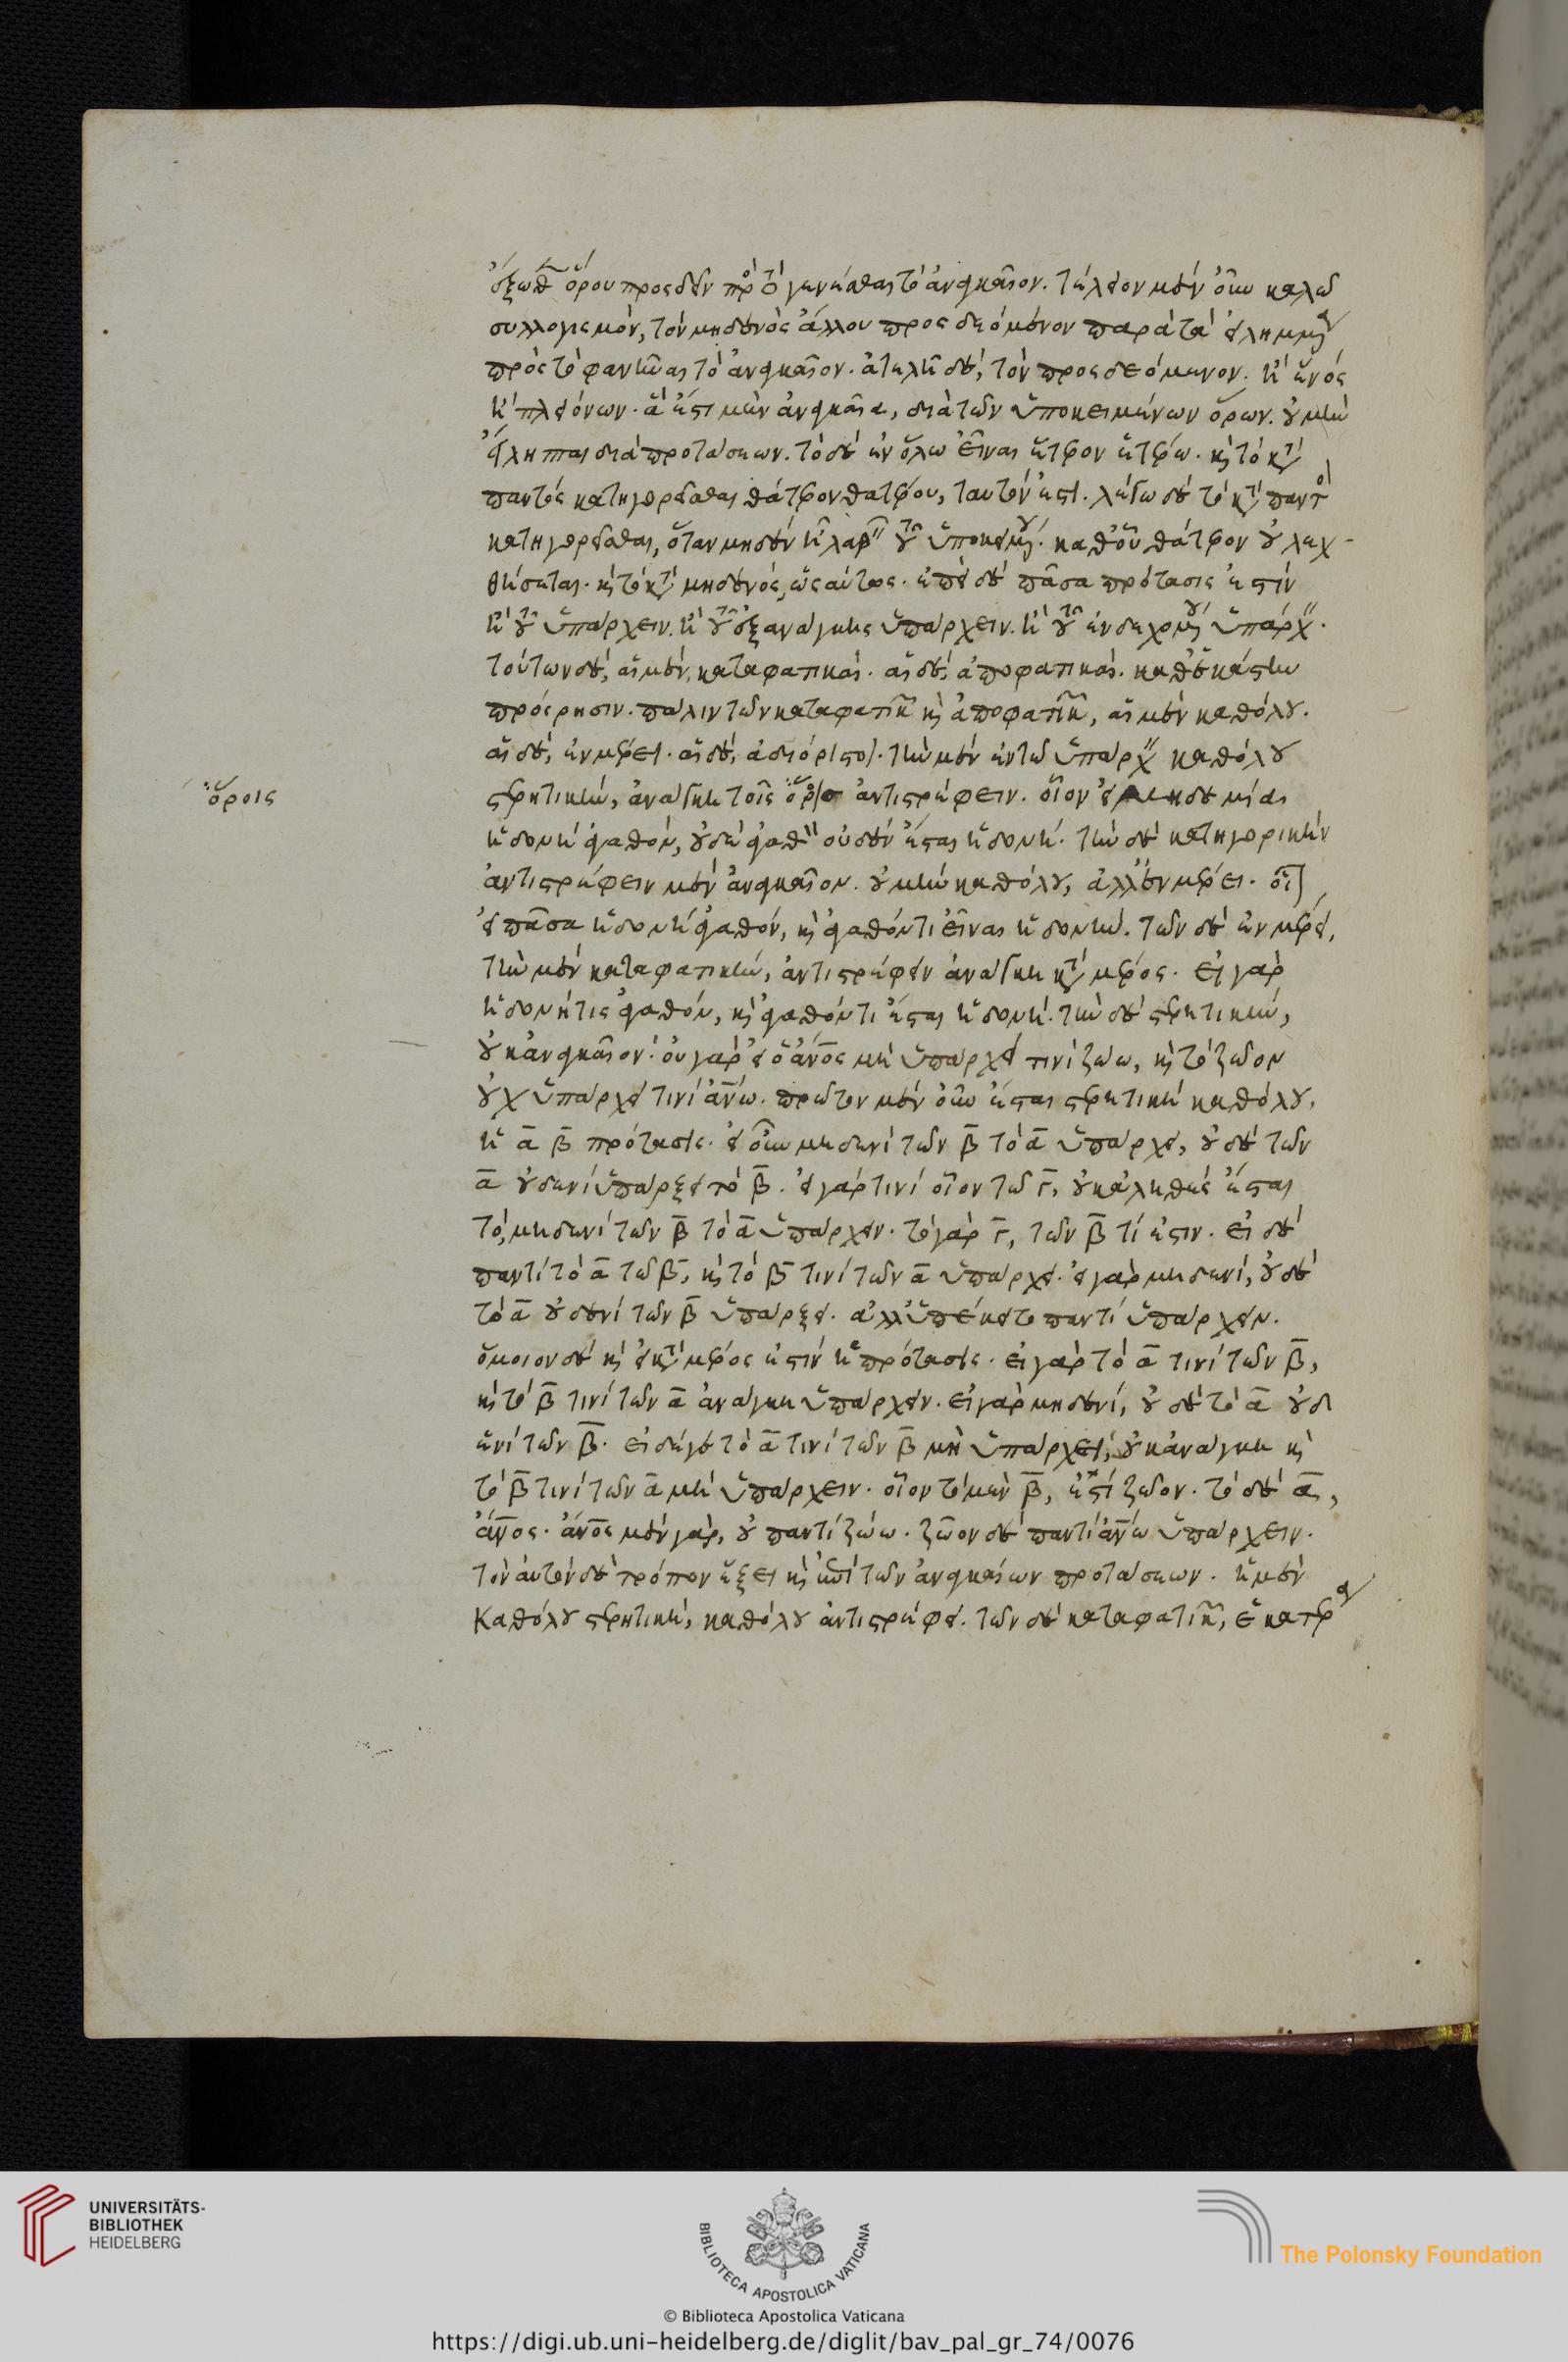 ἔξωθεν ὅρου προσδεῖν πρὸς τὸ γενέσθαι τὸ ἀναγκαῖον. τέλειον μὲν οὖν καλῶ
συλλογισμὸν, τὸν μηδενὸς ἄλλου προσδεόμενον παρὰ τὰ εἰλημμένα
πρὸς τὸ φανῆναι τὸ ἀναγκαῖον. ἀτελῆ δὲ, τὸν προσδεόμενον. ἢ ἑνὸς
ἢ πλειόνων. ἃ ἔστι μὲν ἀναγκαῖα, διὰ τῶν ὑποκειμένων ὅρων. οὐ μὴν
εἴληπται διὰ προτάσεων. τὸ δὲ ἐν ὅλω εἶναι ἕτερον ἑτέρω. καὶ τὸ κατὰ
παντὸς κατηγορεῖσθαι θάτερον θατέρου, ταυτόν ἐστι. λέγω δὲ τὸ κατὰ παντὸς
κατηγορεῖσθαι, ὅταν μηδὲν ἦ λαβεῖν τοῦ ὑποκειμένου. καθ' οὗ θάτερον οὐ λεχ-
θήσεται. καὶ τὸ κατὰ μηδενὸς, ὡσαύτως. ἐπεὶ δὲ πᾶσα πρότασις ἐστὶν
ἢ τοῦ ὑπάρχειν. ἢ τοῦ ἐξ ἀνάγκης ὑπάρχειν. ἢ τοῦ ἐνδεχομένου ὑπάρχειν.
τούτων δὲ, αἱ μὲν, καταφατικαὶ. αἱ δὲ, ἀποφατικαὶ. καθ' ἑκάστην
πρόσρησιν. πάλιν τῶν καταφατικῶν καὶ ἀποφατικῶν, αἱ μὲν καθόλου.
αἱ δὲ, ἐν μέρει. αἱ δὲ, ἀδιόριστοι. τὴν μὲν ἐν τῶ ὑπάρχειν καθόλου
στερητικὴν, ἀνάγκη τοῖς ὅροις ἀντιστρέφειν. οἷον εἰ μηδεμία
ὅροις
ἡδονὴ ἀγαθὸν, οὐδὲ ἀγαθὸν οὐδὲν ἔσται ἡδονή. τὴν δὲ κατηγορικὴν
ἀντιστρέφειν μὲν ἀναγκαῖον. οὐ μὴν καθόλου, ἀλλ' ἐν μέρει. οἷον
εἰ πᾶσα ἡδονὴ ἀγαθὸν, καὶ ἀγαθόν τι εἶναι ἡδονήν. τῶν δὲ ἐν μέρει,
τὴν μὲν καταφατικὴν, ἀντιστρέφειν ἀνάγκη κατὰ μέρος. εἰ γὰρ
ἡδονή τις ἀγαθὸν, καὶ ἀγαθόν τι ἔσται ἡδονή. τὴν δὲ στερητικὴν,
οὐκ ἀναγκαῖον. οὐ γὰρ εἰ ὁ ἄν̅ο̅ς μὴ ὑπάρχει τινὶ ζώω, καὶ τὸ ζῶον
οὐχ ὑπάρχει τινὶ ἀν̅ω̅. πρῶτον μὲν οὖν ἔσται στερητικὴ καθόλου,
ἡ α̅ β̅ πρότασις. εἰ οὖν μηδενὶ τῶν β̅ τὸ α̅ ὑπάρχει, οὐδὲ τῶν
α̅ οὐδενὶ ὑπάρξει τὸ β̅. εἰ γάρ τινὶ οἷον τῶ γ̅, οὐκ ἀληθὲς ἔσται
τὸ, μηδενὶ τῶν β̅ τὸ α̅ ὑπάρχειν. τὸ γὰρ γ̅, τῶν β̅ τί ἐστιν. εἰ δὲ
παντὶ τὸ α̅ τῶ β̅, καὶ τὸ β̅ τινὶ τῶν α̅ ὑπάρχει. εἰ γὰρ μηδενὶ, οὐδὲ
τὸ α̅ οὐδενὶ τῶν β̅ ὑπάρξει. ἀλλ' ὑπέκειτο παντὶ ὑπάρχειν.
ὅμοιον δὲ καὶ εἰ κατὰ μέρος ἐστὶν ἡ πρότασις. εἰ γὰρ τὸ α̅ τινὶ τῶν β̅,
καὶ τὸ β̅ τινὶ τῶν α̅ ἀνάγκη ὑπάρχειν. εἰ γὰρ μηδενὶ, οὐδὲ τὸ α̅ οὐδ
ενὶ τῶν β̅. εἰ δέ γε τὸ α̅ τινὶ τῶν β̅ μὴ ὑπάρχει, οὐκ ἀνάγκη καὶ
τὸ β̅ τινὶ τῶν α̅ μὴ ὑπάρχειν. οἷον τὸ μὲν β̅, ἐστὶ ζῶον. τὸ δὲ α̅,
ἄν̅ο̅ς. ἄν̅ο̅ς μὲν γὰρ, οὐ παντὶ ζώω. ζῶον δὲ παντὶ ἀν̅ω̅ ὑπάρχειν.
τὸν αὐτὸν δὲ τρόπον ἕξει καὶ ἐπὶ τῶν ἀναγκαίων προτάσεων. ἡ μὲν
καθόλου στερητικὴ, καθόλου ἀντιστρέφει. τῶν δὲ καταφατικῶν, ἑκατέρα
UNIVERSITÄTS-
BIBLIOTHEK
HEIDELBERG
BIBLIOTECA APOSTOLICA VATICANA
The Polonsky Foundation
© Biblioteca Apostolica Vaticana
https://digi.ub.uni-heidelberg.de/diglit/bav_pal_gr_74/0076